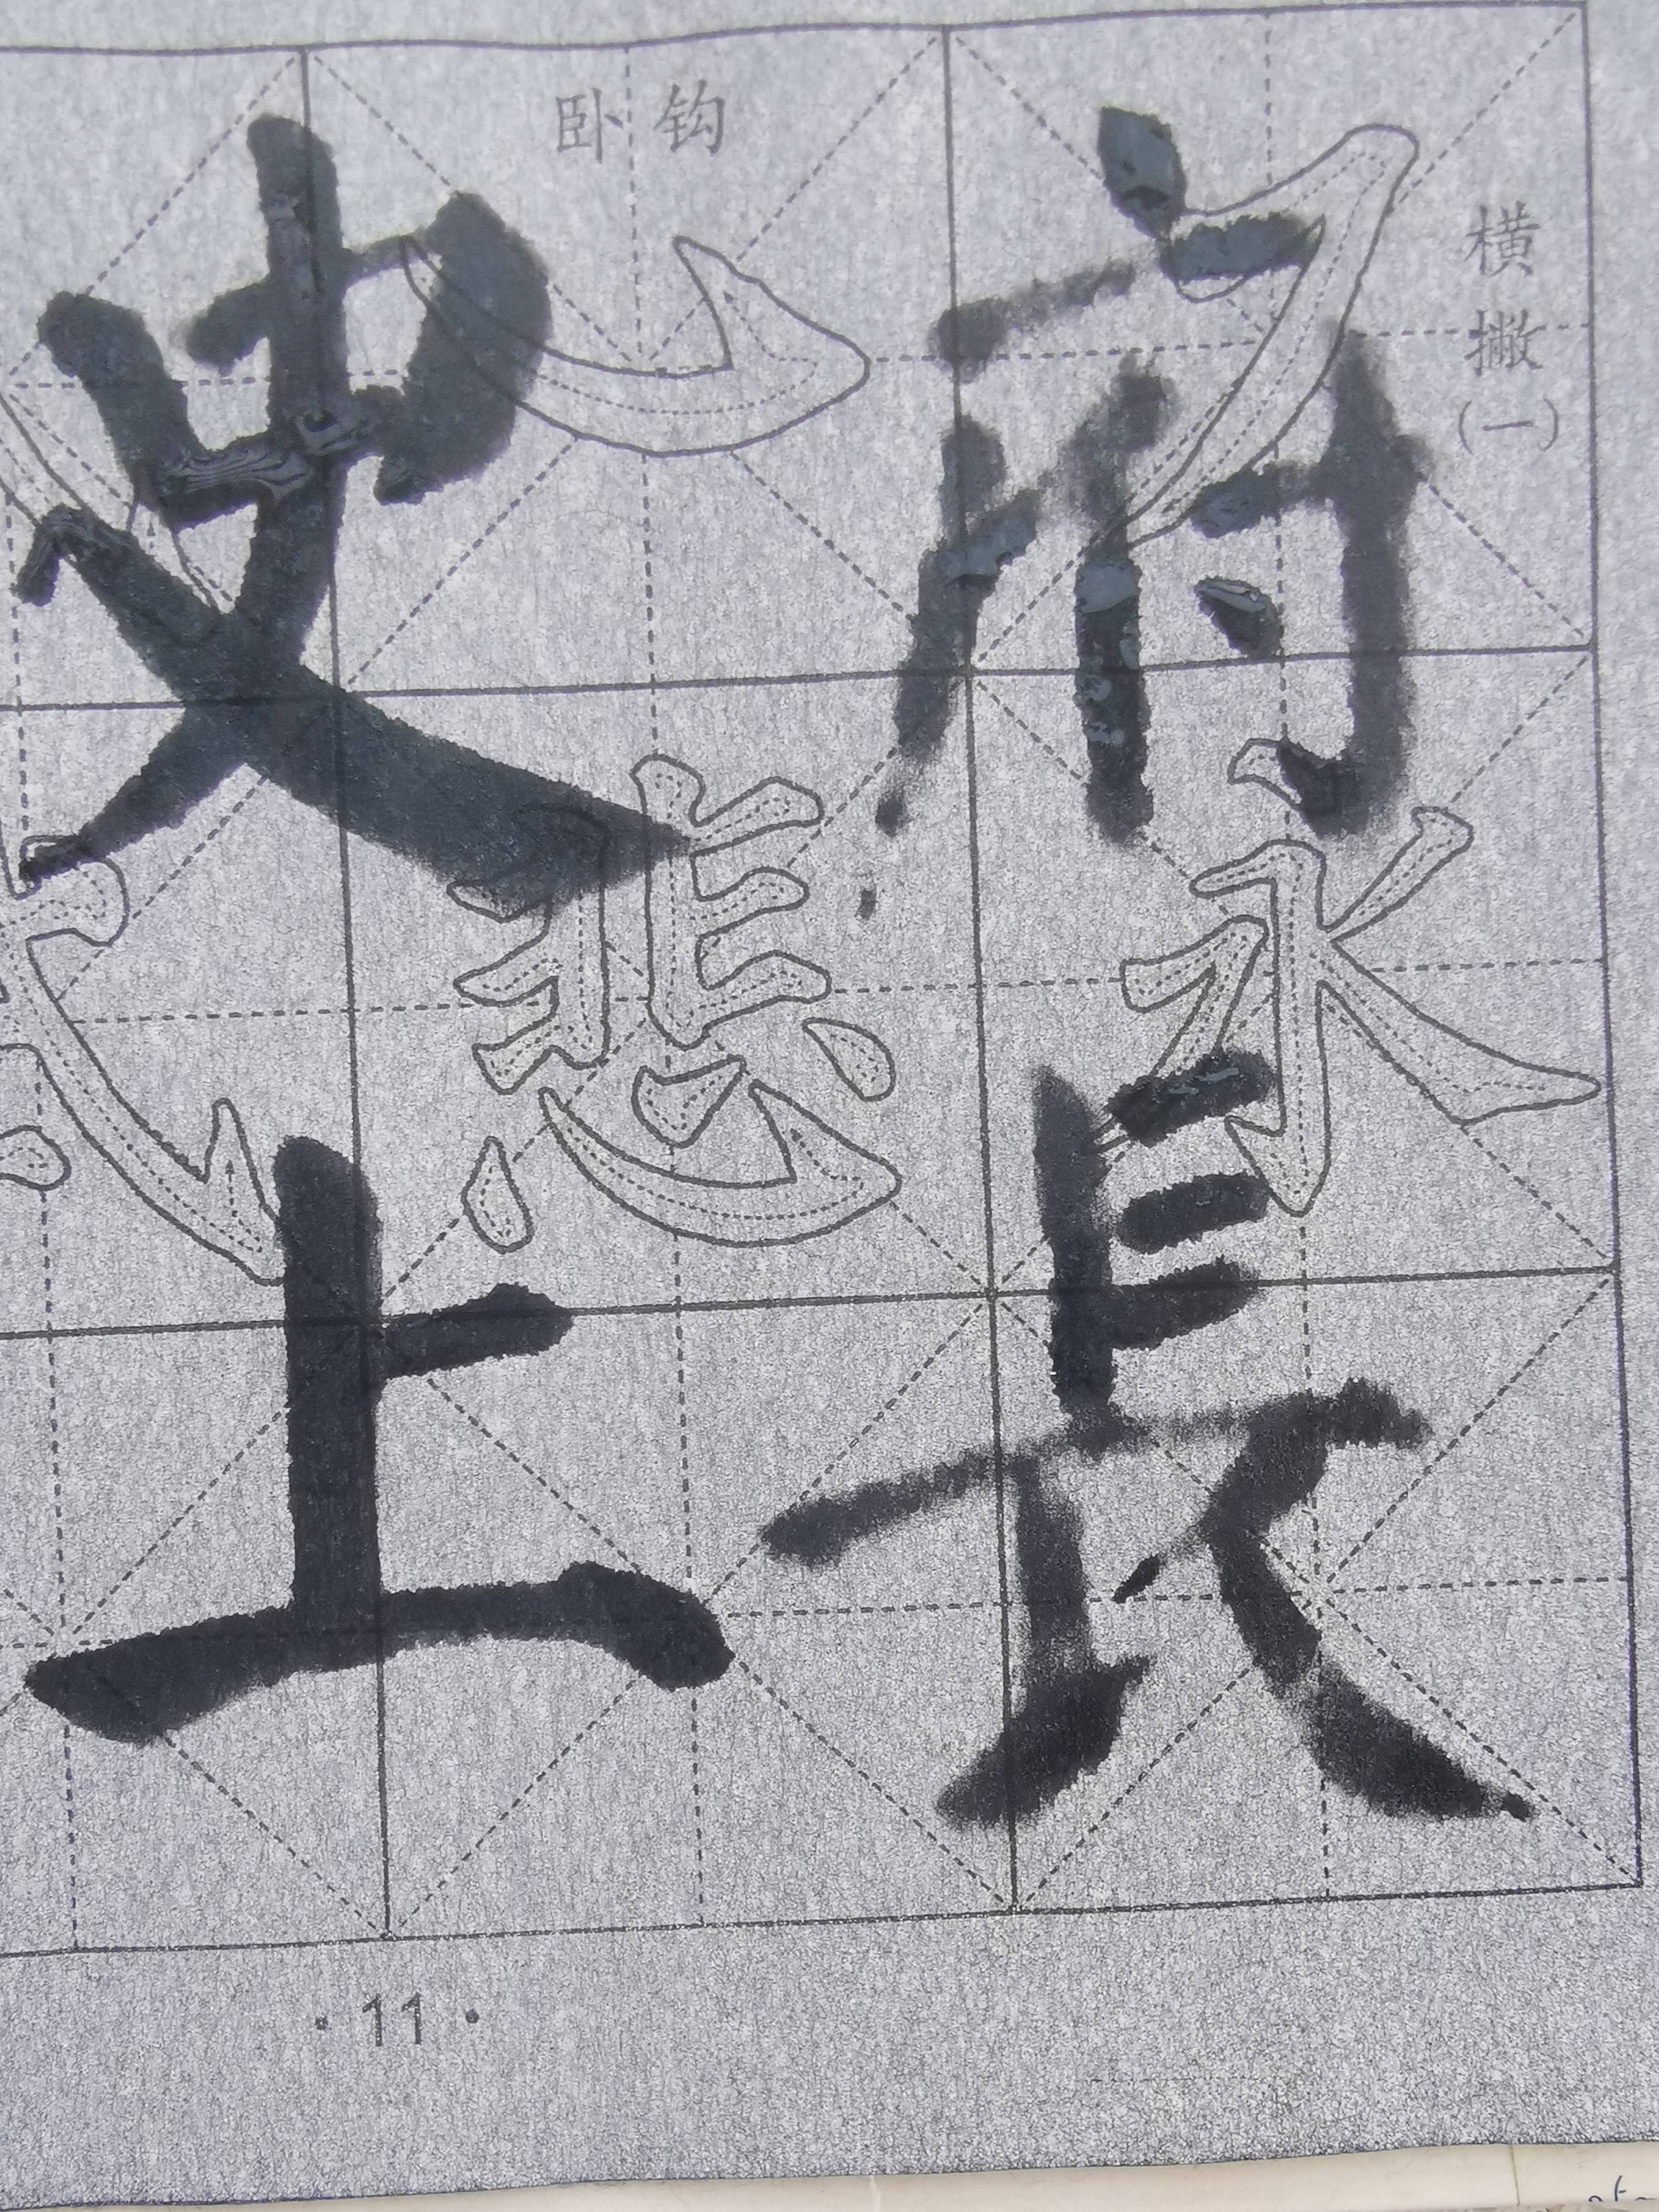 横撇(一)
永
府長
卧钩
悲
史上
·11·